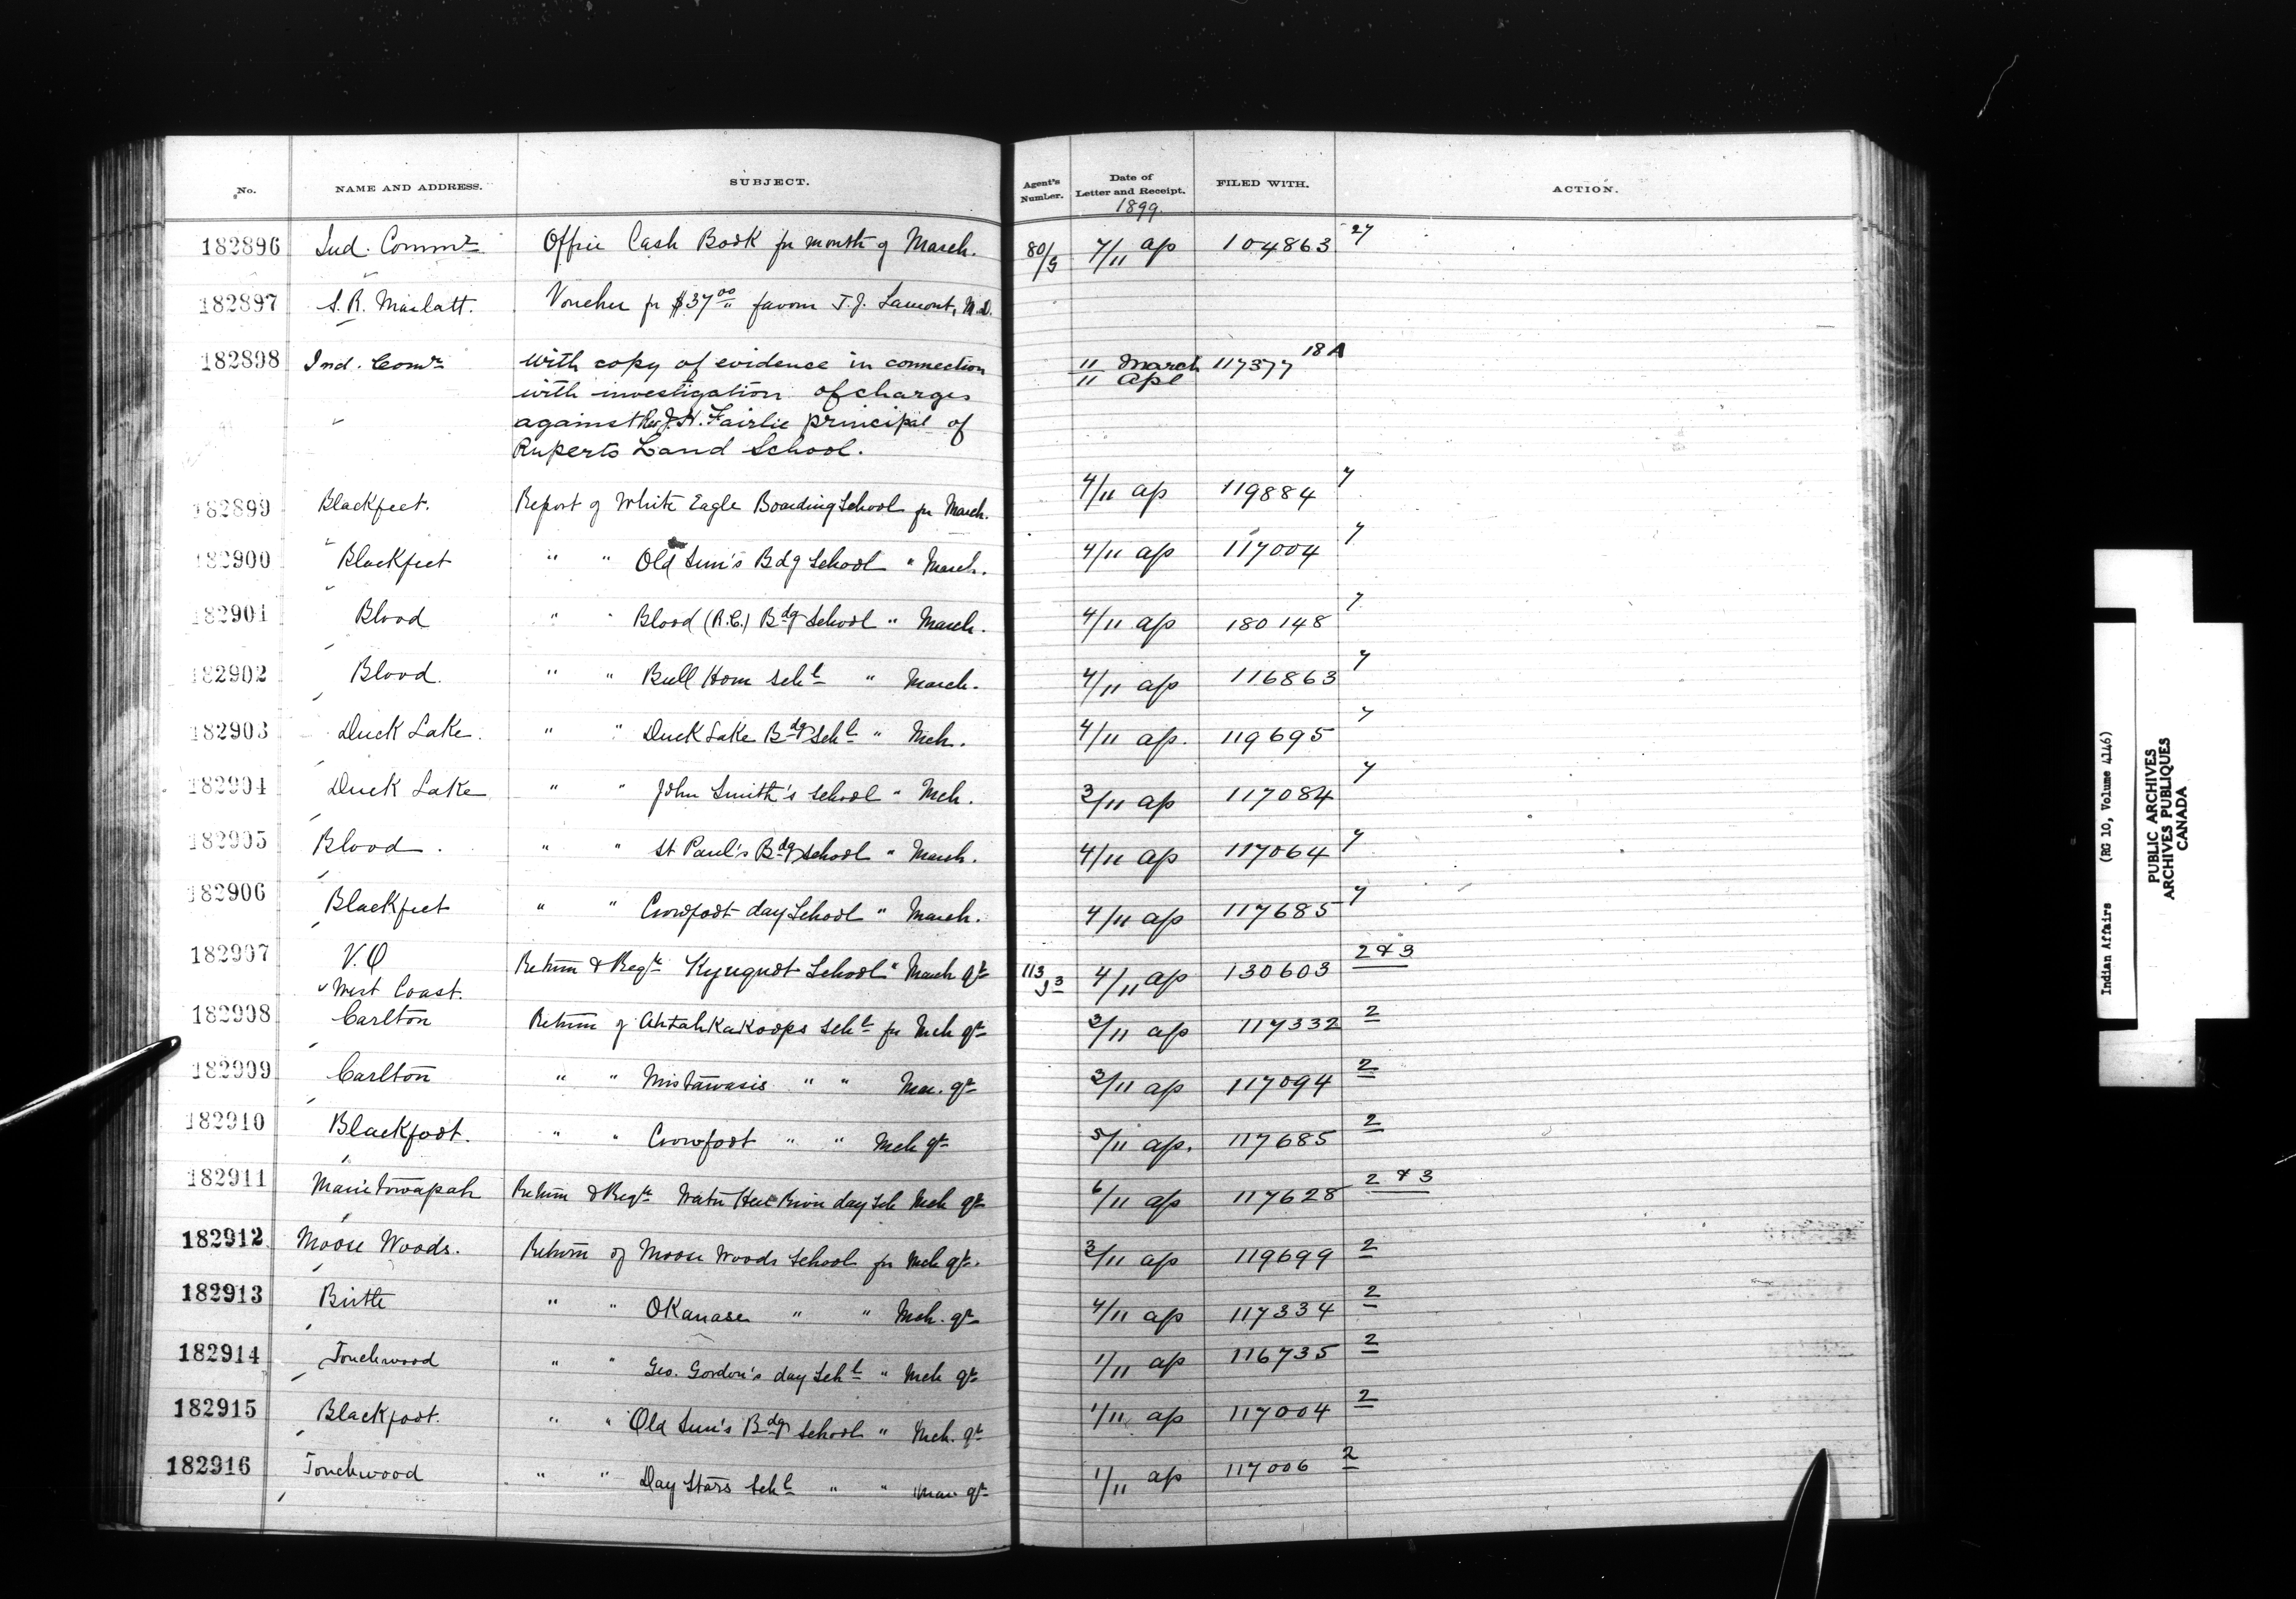 No. NAME AND ADDRESS. SUBJECT. Agent's Number. Date of Letter and Receipt. FILED WITH. ACTION.
1899
182896 Ind. Commr Office Cash Book for month of March. 80/5 7/11 ap 104863 27
182897 S. R. Marlatt. Voucher for $37.00 favour T. J. Lamont, M.D.
182898 Ind. Comr with copy of evidence in connection 11 March 11 Apl 117377 18A
with investigation of charges
against Rev J. H. Fairlie principal of
Ruperts Land School.
182899 Blackfeet. Report of White Eagle Boarding School for March. 4/11 ap 119884 7
182900 Blackfeet " " Old Sun's Bdg School " March. 4/11 ap 117004 7
182901 Blood " " Blood (R.C.) Bdg School " March. 4/11 ap 180148 7
182902 Blood. " " Bull Horn Schl " March. 4/11 ap 116863 7
182903 Duck Lake. " " Duck Lake Bdg Schl " Mch. 4/11 ap. 119695 7
182904 Duck Lake " " John Smith's School " Mch. 3/11 ap 117084 7
182905 Blood. " " St Paul's Bdg School " March. 4/11 ap 117064 7
182906 Blackfeet " " Crowfoot day School " March. 4/11 ap 117685 7
182907 V.O Return & Regtr Kyuquot School " March qr 113/J3 4/11 ap 130603 2 & 3
West Coast.
182908 Carlton Return of Ahtahkakoops Schl for Mch qr 3/11 ap 117332 2
182909 Carlton " " Mistawasis " " Mar. qr 3/11 ap 117094 2
182910 Blackfoot. " " Crowfoot " " Mch qr 5/11 ap. 117685 2
182911 Manitowapah Return & Regtr Water Hen River day Sch Mch qr 6/11 ap 117628 2 & 3
182912 Moose Woods. Return of Moose Woods School for Mch qr. 3/11 ap 119699 2
182913 Birtle " " Okanase " " Mch. qr 4/11 ap 117334 2
182914 Touchwood " " Geo. Gordon's day Schl " Mch qr 1/11 ap 116735 2
182915 Blackfoot. " " Old Sun's Bdg School " Mch. qr 1/11 ap 117004 2
182916 Touchwood " " Day Stars Schl " " Mar qr 1/11 ap 117006 2
Indian Affairs (RG 10, Volume 4146)
PUBLIC ARCHIVES
ARCHIVES PUBLIQUES
CANADA